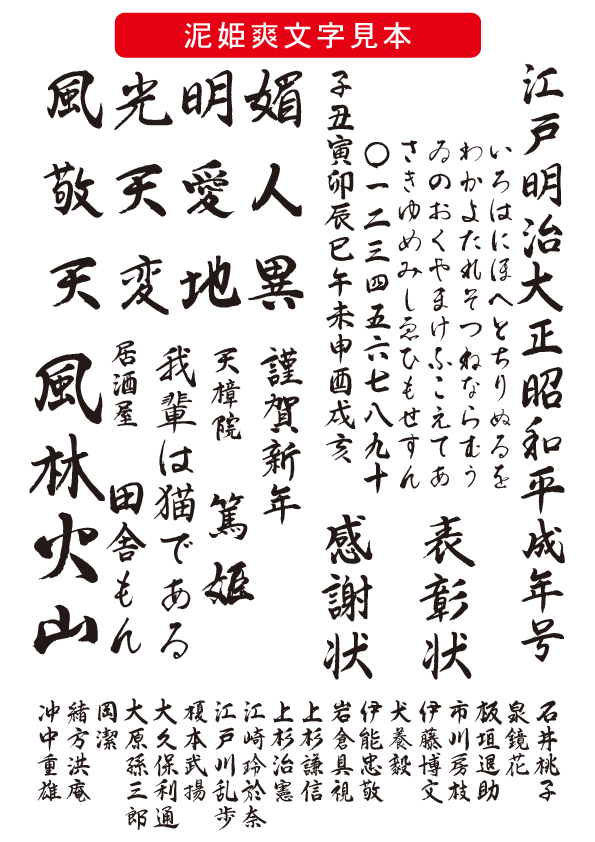 泥姫爽文字見本
江戸明治大正昭和平成年号
いろはにほへとちりぬるを
わかよたれそつねならむう
ゐのおくやまけふこえてあ
さきゆめみしゑひもせすん
〇一二三四五六七八九十
子丑寅卯辰巳午未申酉戌亥
表彰状
感謝状
風光明媚
敬天愛人
天変地異
謹賀新年
天樟院 篤姫
我輩は猫である
居酒屋 田舎もん
風林火山
石井桃子
泉鏡花
板垣退助
市川房枝
伊藤博文
犬養毅
伊能忠敬
岩倉具視
上杉謙信
上杉治憲
江崎玲於奈
江戸川乱歩
榎本武揚
大久保利通
大原孫三郎
岡潔
緒方洪庵
沖中重雄